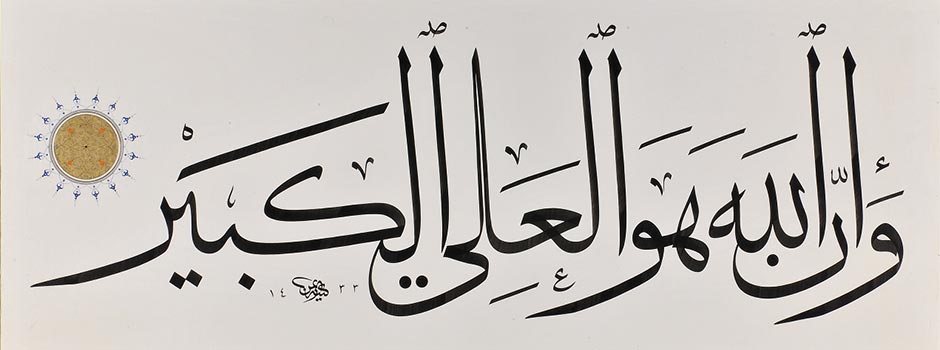 وَأَنَّ ٱللَّهَ هُوَ ٱلْعَلِيُّ ٱلْكَبِيرُ
١٤ ٣٣